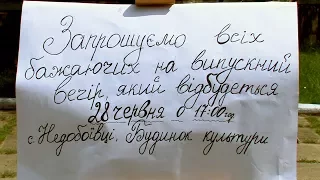 Запрошуємо всіх
бажаючих на випускний
вечір, який відбудеться
28 червня о 17:00 год.
с. Недобоївці. Будинок культури